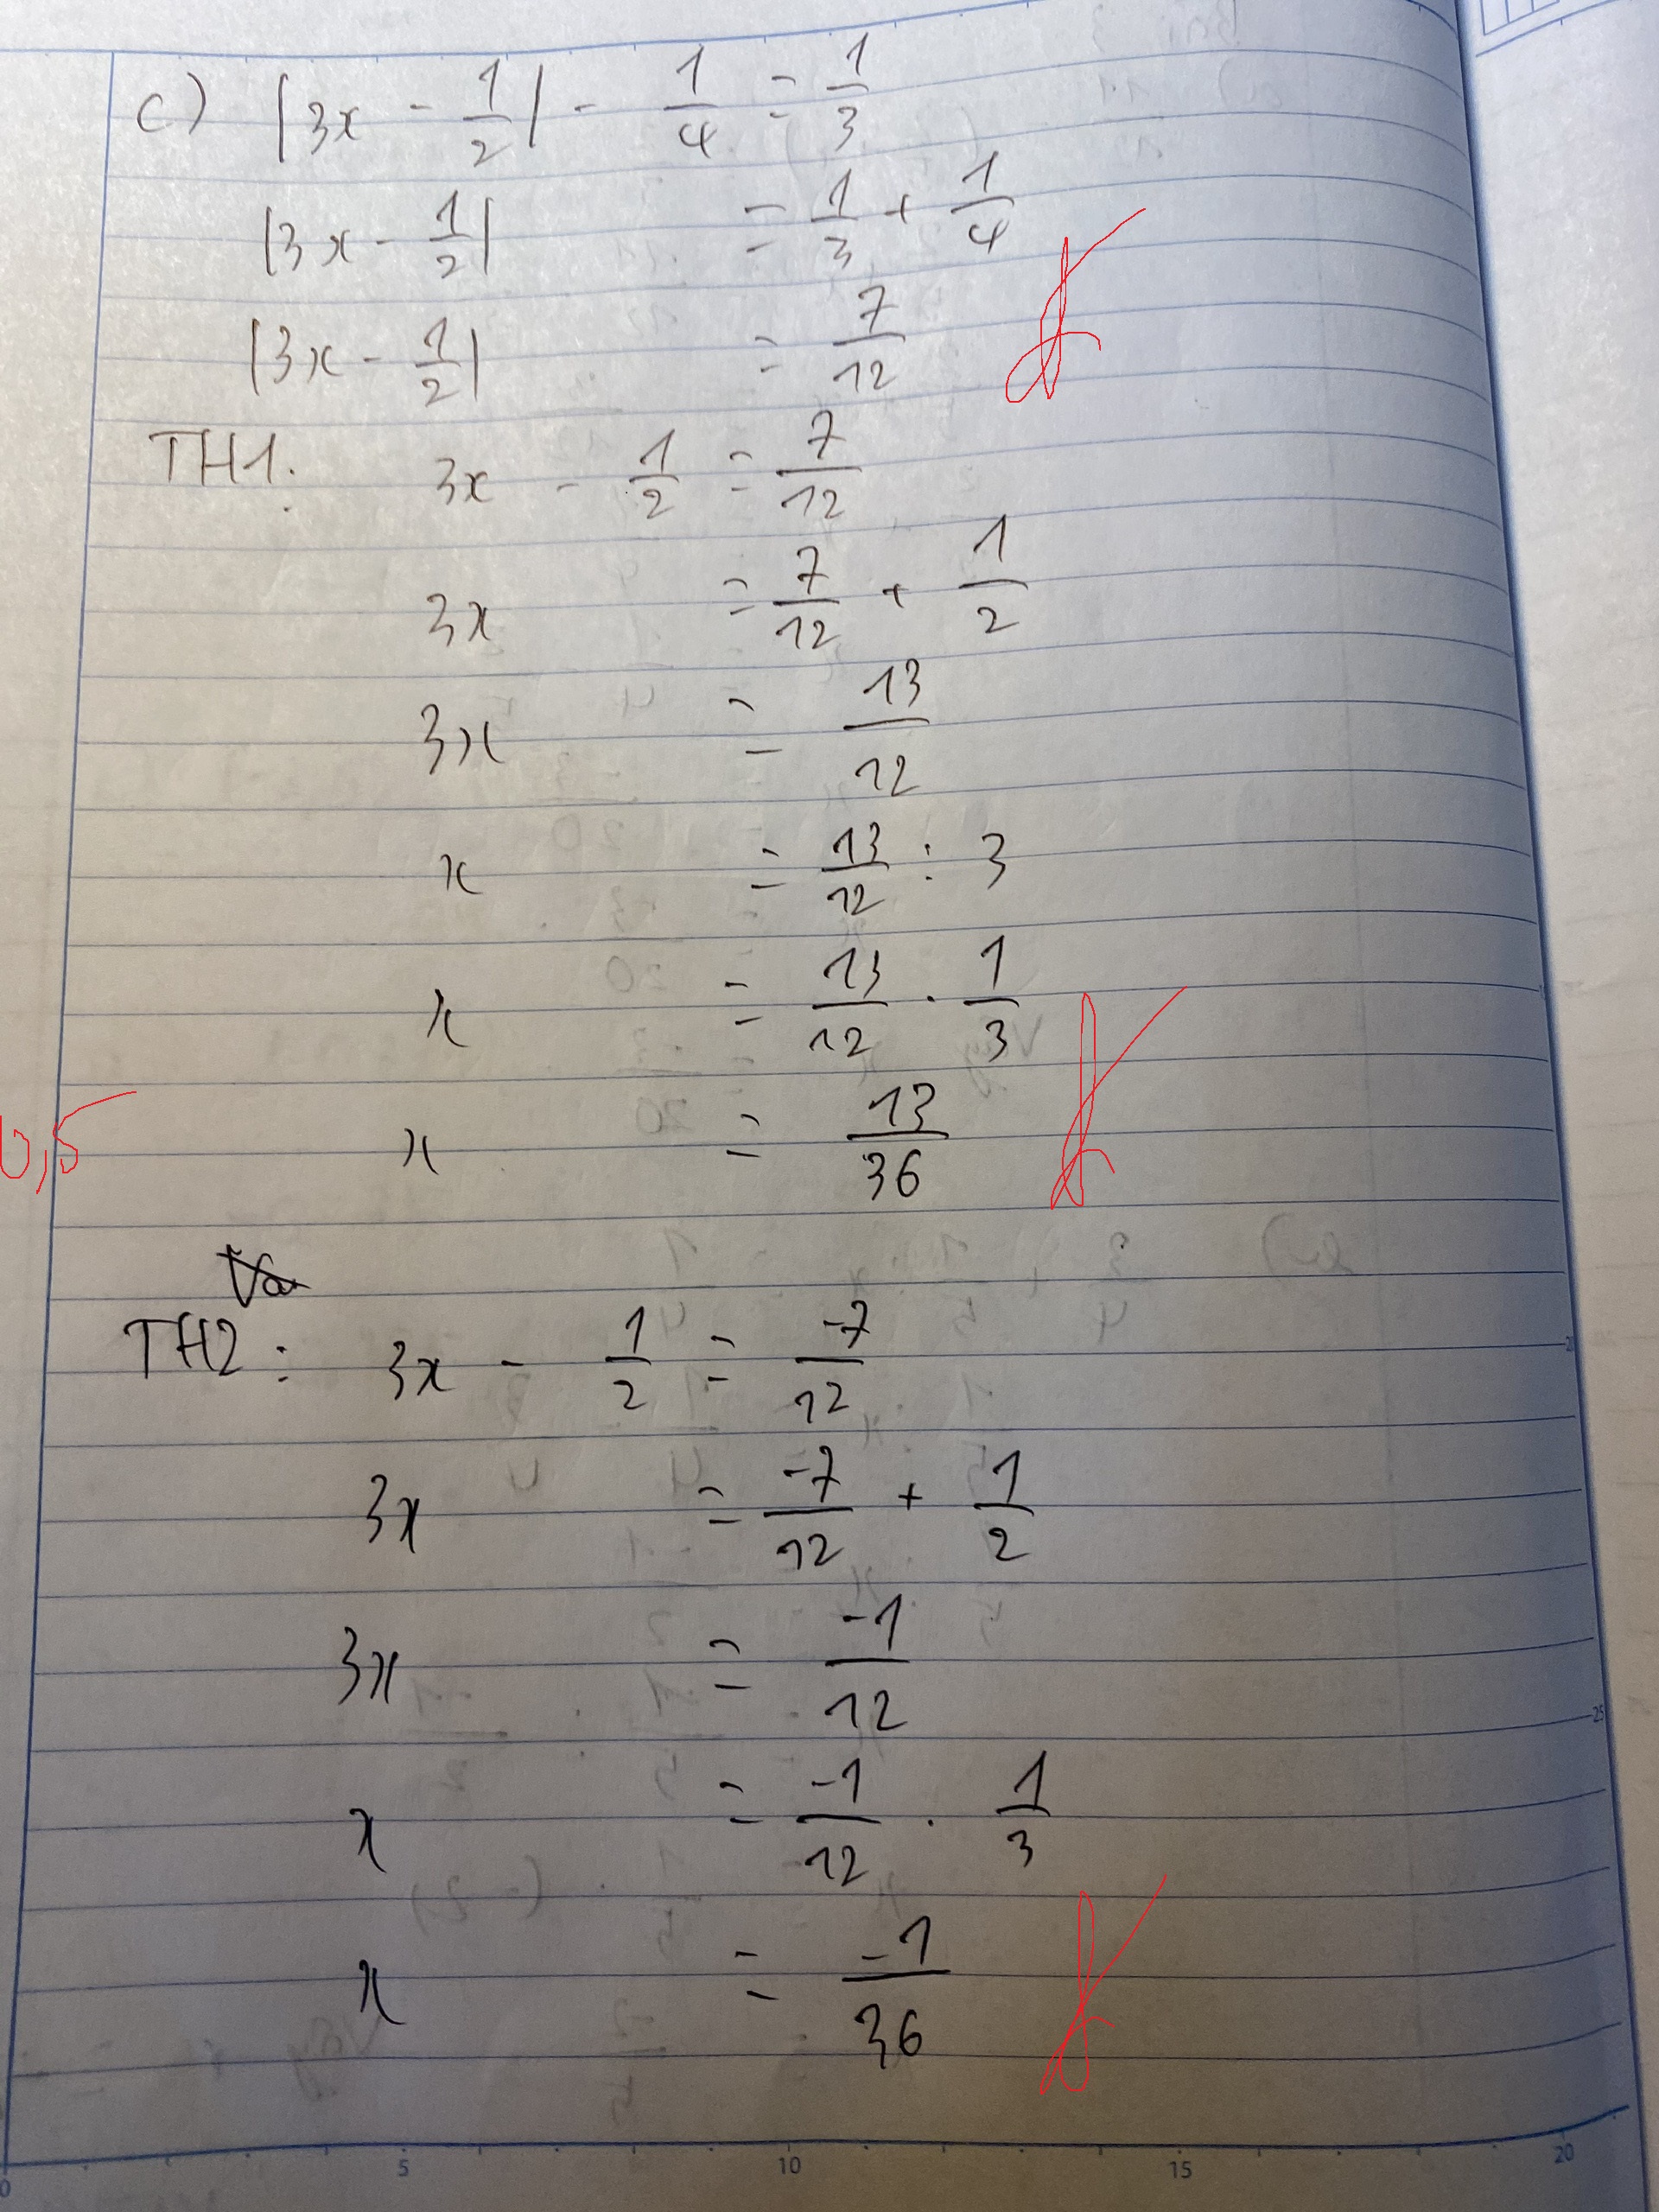 c) |3x - 1/2| - 1/4 = 1/3
|3x - 1/2| = 1/3 + 1/4
|3x - 1/2| = 7/12
TH1: 3x - 1/2 = 7/12
3x = 7/12 + 1/2
3x = 13/12
x = 13/12 : 3
x = 13/12 . 1/3
0,5
x = 13/36
TH2: 3x - 1/2 = -7/12
3x = -7/12 + 1/2
3x = -1/12
x = -1/12 . 1/3
x = -1/36
0 5 10 15 20
25